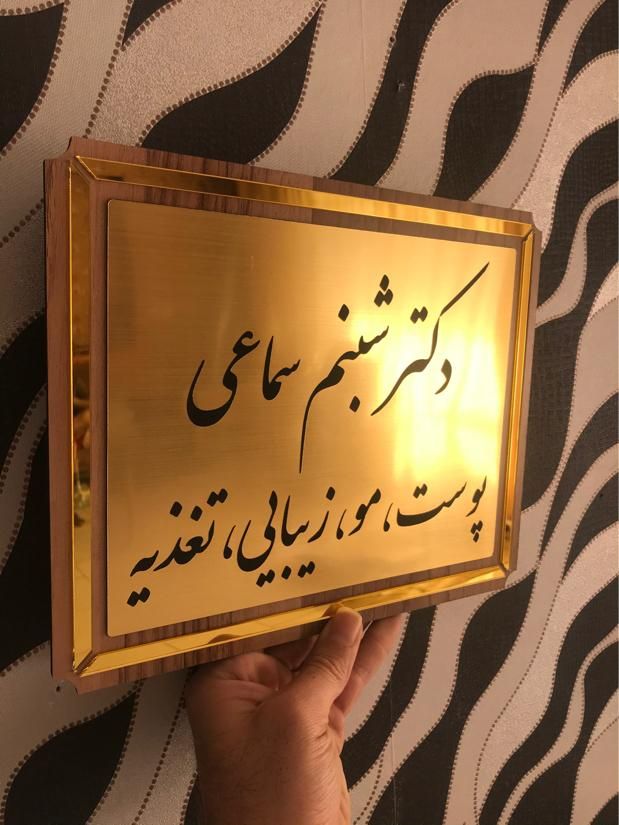 دکتر شبنم سماعی
پوست، مو، زیبایی، تغذیه